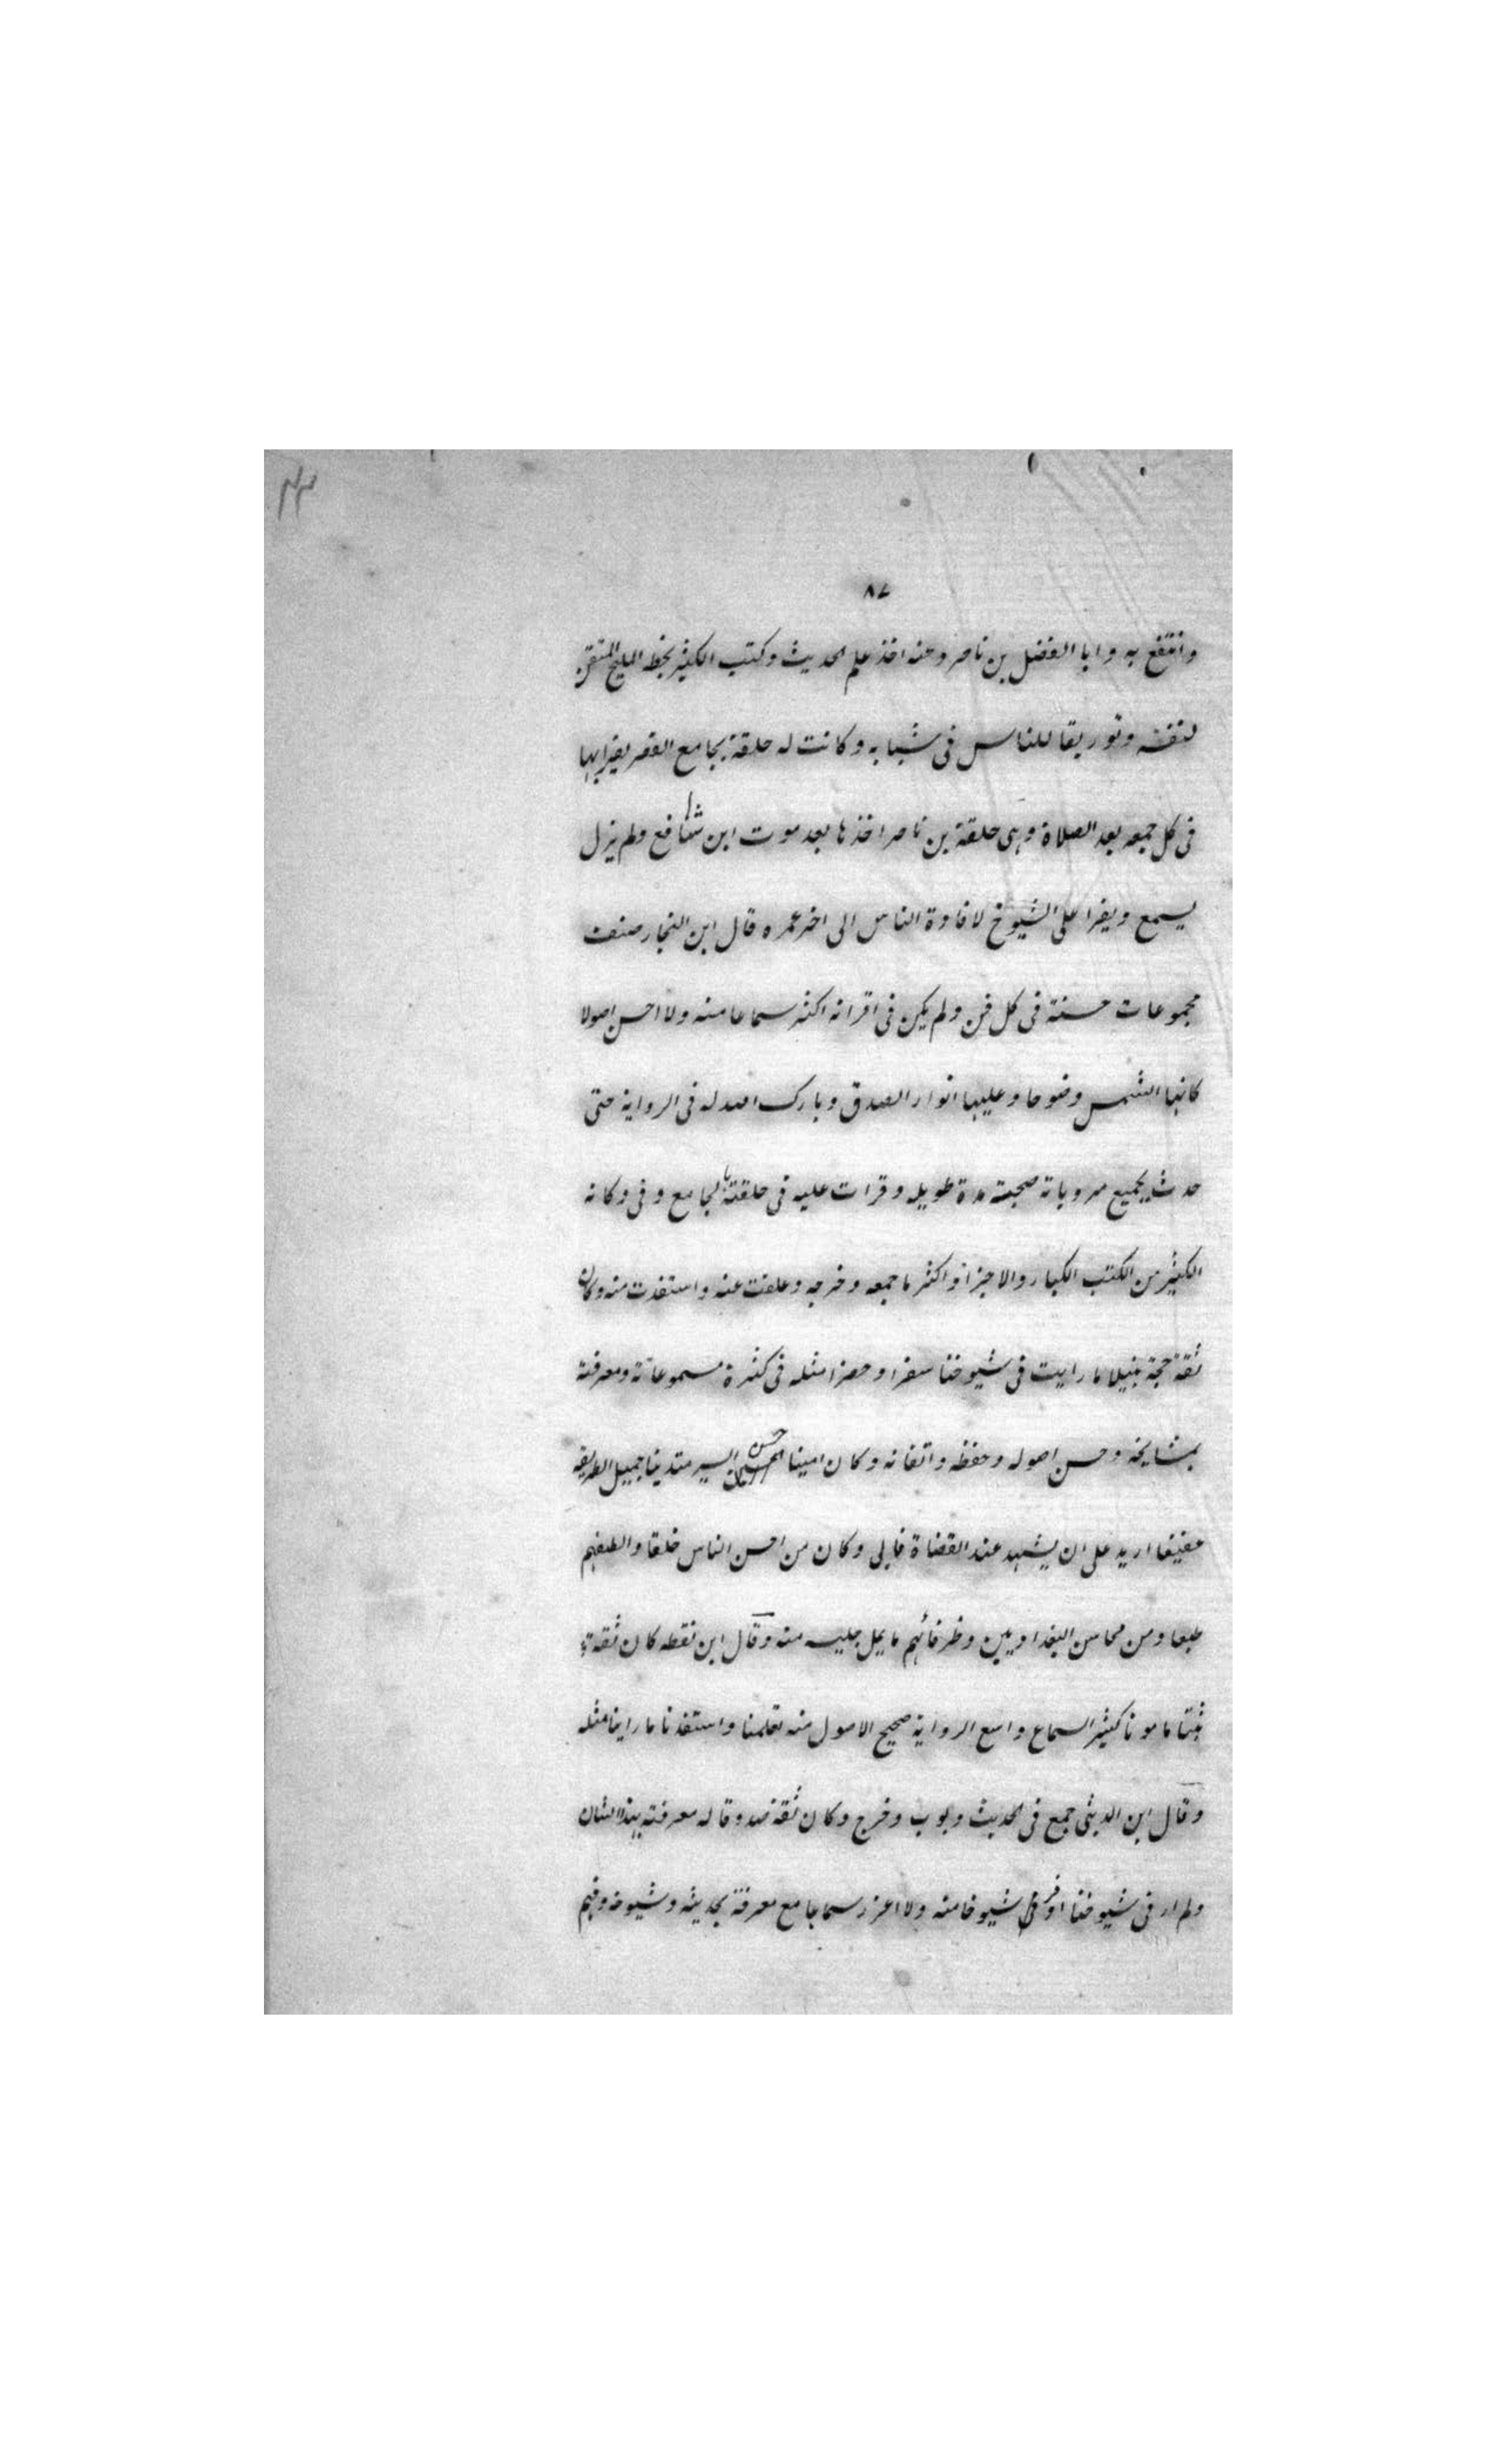 ٨٧
وانتفع به وابا الفضل بن ناصر وعنه اخذ علم الحديث وكتب الكثير بخطه المليح المتقن
لنفسه وتوريقا للناس فى شبابه وكانت له حلقة بجامع القصر يقرا بها
فى كل جمعه بعد الصلاة وهى حلقة بن ناصر اخذها بعد موت ابن شافع ولم يزل
يسمع ويقرا على الشيوخ لافادة الناس الى اخر عمره قال ابن النجار صنف
مجموعات حسنة فى كل فن ولم يكن فى اقرانه اكثر سماعا منه ولا احسن اصولا
كانها الشمس وضوحا وعليها انوار الصدق وبارك الله له فى الرواية حتى
حدث بجميع مروياته صحبته مدة طويله وقرات عليه فى حلقته بالجامع وفى دكانه
الكثير من الكتب الكبار والاجزا واكثر ما جمعه وخرجه وعلقت عنه واستفدت منه وكان
ثقة حجة نبيلا ما رايت فى شيوخنا سفرا وحضرا مثله فى كثرة مسموعاته ومعرفته
بمشايخه وحسن اصوله وحفظه واتقانه وكان امينا حسن السير متدينا جميل الطريقه
عفيفا اريد على ان يشهد عند القضاة فابى وكان من احسن الناس خلقا والطفهم
طبعا ومن محاسن البغداديين وظرفائهم ما يمل جليسه منه وقال ابن نقطه كان ثقة
ثبتا مامونا كثير السماع واسع الرواية صحيح الاصول منه تعلمنا واستفدنا ما راينا مثله
وقال ابن الدبيثى جمع فى الحديث وبوب وخرج وكان ثقة صدوقا له معرفته بهذا الشان
ولم ار فى شيوخنا اوفر شيوخا منه ولا اغزر سماعا مع معرفة بحديثه وشيوخه وفهم